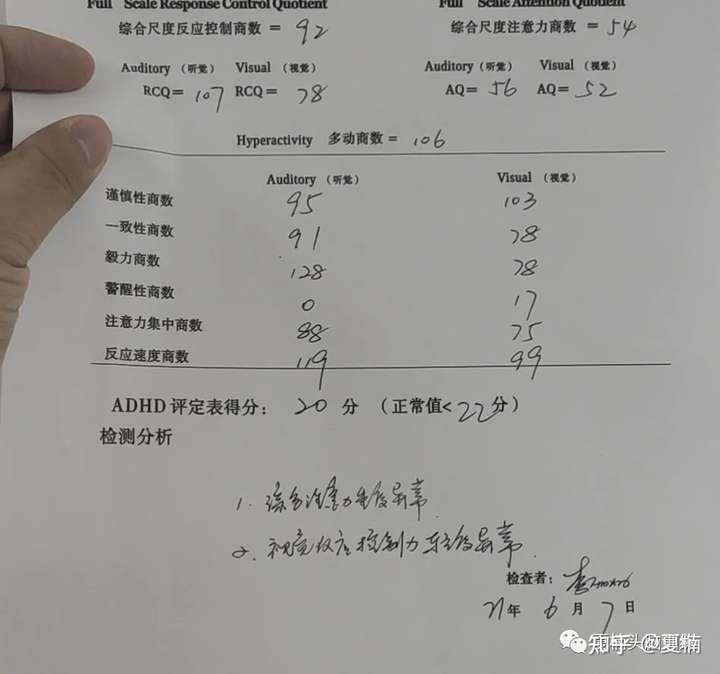 Full Scale Response Control Quotient Full Scale Attention Quotient
综合尺度反应控制商数 = 92 综合尺度注意力商数 = 54
Auditory （听觉） Visual （视觉） Auditory（听觉） Visual （视觉）
RCQ= 107 RCQ= 78 AQ= 56 AQ= 52
Hyperactivity 多动商数 = 106
Auditory （听觉） Visual （视觉）
谨慎性商数 95 103
一致性商数 91 78
毅力商数 128 78
警醒性商数 0 17
注意力集中商数 88 75
反应速度商数 119 99
ADHD 评定表得分： 20 分 （正常值<22分）
检测分析
1. 综合注意力重度异常
2. 视觉反应控制力轻度异常
检查者： 李
21年 6 月 7 日
知乎 @夏楠